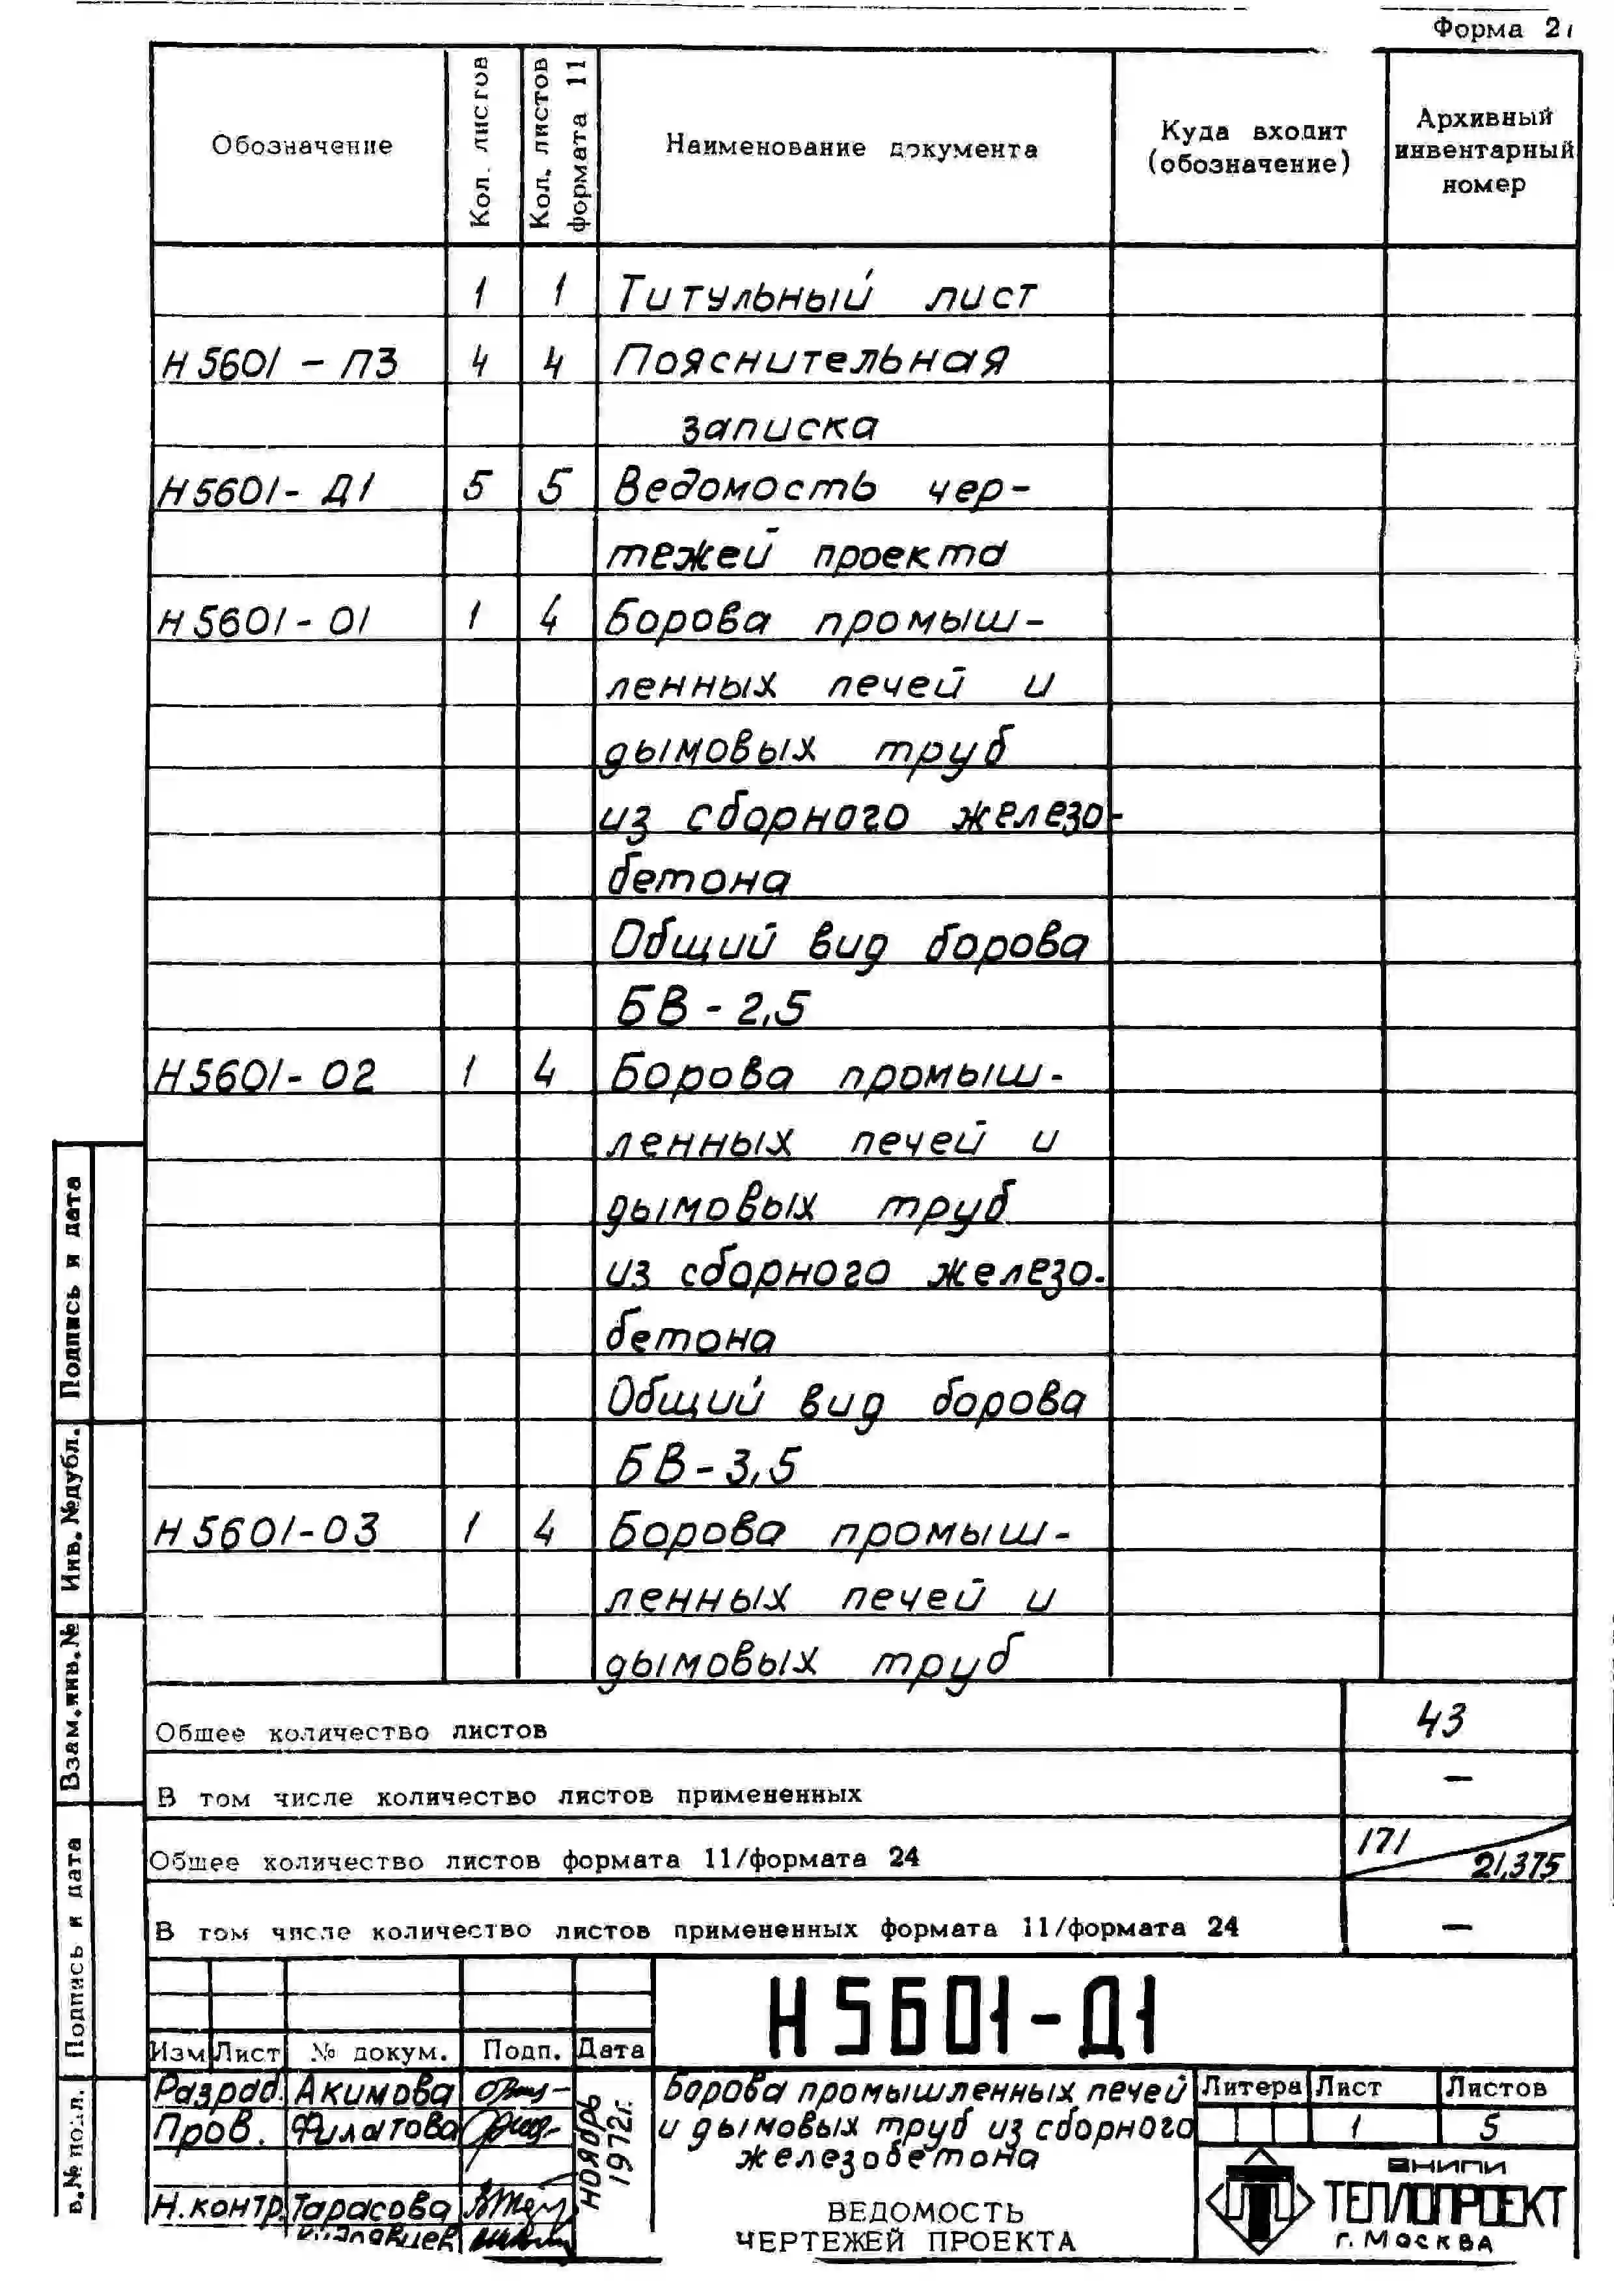 Форма 2
Обозначение
Кол. листов
Кол. листов формата 11
Наименование документа
Куда входит (обозначение)
Архивный инвентарный номер
1 1 Титульный лист
Н5601 - ПЗ 4 4 Пояснительная
записка
Н5601- Д1 5 5 Ведомость чер-
тежей проекта
Н5601-01 1 4 Борова промыш-
ленных печей и
дымовых труб
из сборного железо-
бетона
Общий вид борова
БВ-2,5
Н5601-02 1 4 Борова промыш-
ленных печей и
дымовых труб
из сборного железо-
бетона
Общий вид борова
БВ-3,5
Н5601-03 1 4 Борова промыш-
ленных печей и
дымовых труб
Общее количество листов 43
В том числе количество листов примененных —
Общее количество листов формата 11/формата 24 171 21,375
В том числе количество листов примененных формата 11/формата 24 —
Подпись и дата
Инв.№дубл.
Взам.инв.№
Подпись и дата
в.№ подл.
Н5601-Д1
Изм Лист № докум. Подп. Дата
Разраб. Акимова
Пров. Филатова
Н.контр. Тарасова
ноябрь 1972г.
Борова промышленных печей
и дымовых труб из сборного
железобетона
ВЕДОМОСТЬ
ЧЕРТЕЖЕЙ ПРОЕКТА
Литера Лист Листов
1 5
ВНИПИ
ТЕПЛОПРОЕКТ
г. Москва